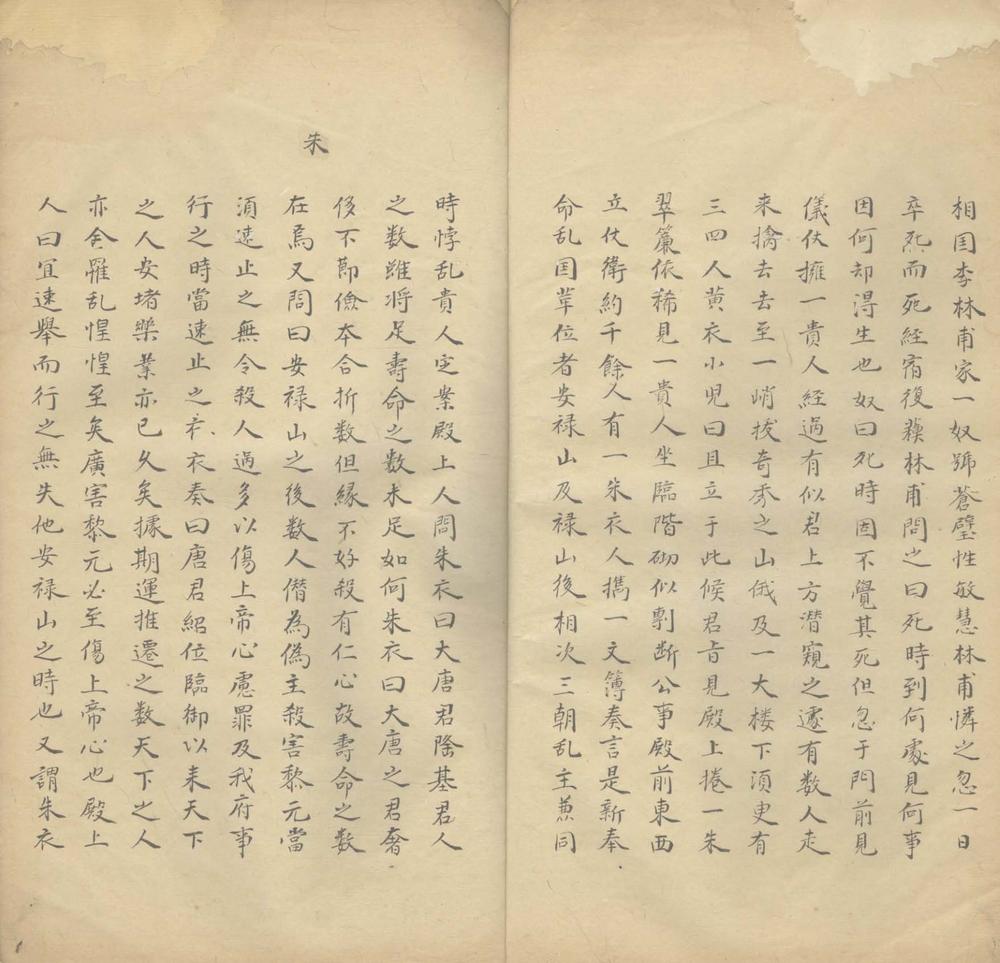 相国李林甫家一奴號蒼璧性敏慧林甫憐之忽一日
卒死而死經宿復蘓林甫問之曰死時到何處見何事
因何却淂生也奴曰死時固不覺其死但忽于門前見
儀仗擁一貴人經過有似君上方潜窺之遽有数人走
来擒去去至一峭拔奇秀之山俄及一大楼下須臾有
三四人黄衣小児曰且立于此候君旨見殿上捲一朱
翠簾依稀見一貴人坐臨階砌似剸断公事殿前東西
立仗衛約千餘人有一朱衣人攜一文簿奏言是新奉
命乱国革位者安禄山及禄山後相次三朝乱主兼同
時悖乱貴人定案殿上人問朱衣曰大唐君隆基君人
之数雖将足壽命之数未足如何朱衣曰大唐之君奢
侈不節儉本合折数但緣不好殺有仁心故壽命之数
在焉又問曰安禄山之後数人僭為偽主殺害黎元當
須速止之無令殺人過多以傷上帝心慮罪及我府事
行之時當速止之衣奏曰唐君紹位臨御以来天下
朱
之人安堵樂業亦已久矣據期運推遷之数天下之人
亦合罹乱惶惶至矣廣害黎元必至傷上帝心也殿上
人曰宜速舉而行之無失他安禄山之時也又謂朱衣